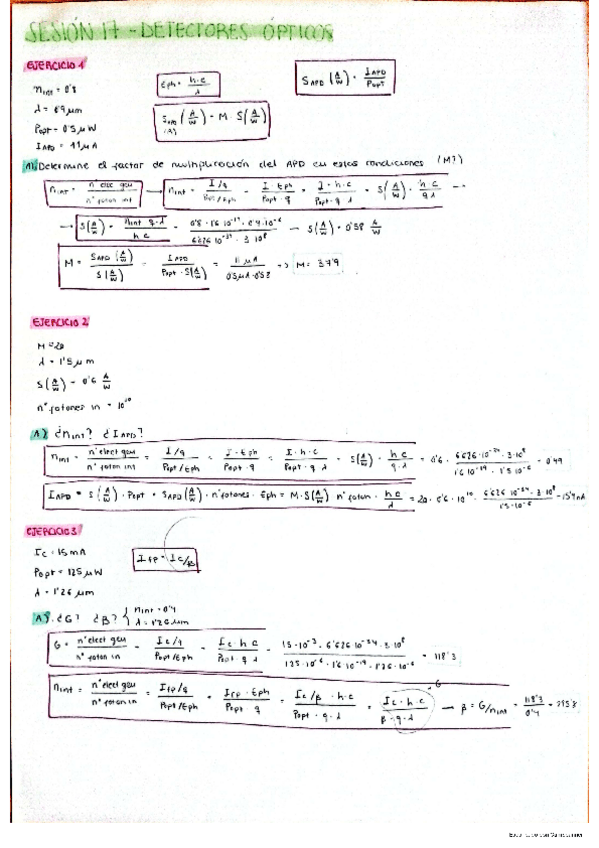 SESIÓN 17 - DETECTORES ÓPTICOS
EJERCICIO 1
ηint = 0'8
λ = 0'9 μm
Popt = 0'5 μW
IAPD = 11 μA
Eph = h·c / λ
SAPD (A/W) = IAPD / Popt
SAPD (A/W) = M · S(A/W)
A) Determine el factor de multiplicación del APD en estas condiciones (M?)
ηint = nº elec gen / nº foton int → ηint = I/q / Popt/Eph = I · Eph / Popt · q = I · h · c / Popt · q · λ = S(A/W) · h·c / q·λ →
→ S(A/W) = ηint · q · λ / h·c = 0'8 · 1'6·10⁻¹⁹ · 0'9·10⁻⁶ / 6'626·10⁻³⁴ · 3·10⁸ → S(A/W) = 0'58 A/W
M = SAPD (A/W) / S(A/W) = IAPD / Popt · S(A/W) = 11 μA / 0'5 μA · 0'58 => M = 37'9
EJERCICIO 2
M = 20
λ = 1'5 μm
S(A/W) = 0'6 A/W
nº fotones in = 10¹⁰
A) ¿ηint? ¿IAPD?
ηint = nº elect gen / nº foton in = I/q / Popt/Eph = I · Eph / Popt · q = I · h · c / Popt · q · λ = S(A/W) · h·c / q·λ = 0'6 · 6'626·10⁻³⁴ · 3·10⁸ / 1'6·10⁻¹⁹ · 1'5·10⁻⁶ = 0'49
IAPD = S(A/W) · Popt = SAPD(A/W) · nº fotones · Eph = M · S(A/W) nº foton · h·c / λ = 20 · 0'6 · 10¹⁰ · 6'626·10⁻³⁴ · 3·10⁸ / 1'5·10⁻⁶
EJERCICIO 3
Ic = 15 mA
Popt = 125 μW
λ = 1'26 μm
Ifp = Ic/β
A) ¿G? ¿β? { ηint = 0'4
λ = 1'26 μm
G = nº elect gen / nº foton in = Ic/q / Popt/Eph = Ic · h · c / Popt · q · λ = 15·10⁻³ · 6'626·10⁻³⁴ · 3·10⁸ / 125·10⁻⁶ · 1'6·10⁻¹⁹ · 1'26·10⁻⁶ = 118'3
ηint = nº elect gen / nº foton in = Ifp/q / Popt/Eph = Ifp · Eph / Popt · q = Ic/β · h · c / Popt · q · λ = Ic · h · c / β · q · λ → G → β = G/ηint = 118'3 / 0'4 = 295'8